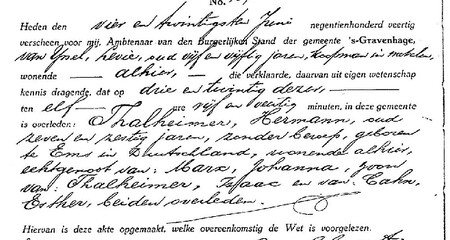 No.
Heden den vier en twintigsten Juni negentienhonderd veertig
verscheen voor mij, Ambtenaar van den Burgerlijken Stand der gemeente 's-Gravenhage,
van IJssel, Levie, oud vijf en vijftig jaren, koopman in metalen,
wonende alhier, die verklaarde, daarvan uit eigen wetenschap
kennis dragende, dat op drie en twintig dezer,
ten elf ure vijf en veertig minuten, in deze gemeente
is overleden: Thalheimer, Hermann, oud
zeven en zestig jaren, zonder beroep, geboren
te Ems in Duitschland, wonende alhier,
echtgenoot van: Marx, Johanna, zoon
van: Thalheimer, Isaac en van: Cahn,
Esther, beiden overleden.
Hiervan is deze akte opgemaakt, welke overeenkomstig de Wet is voorgelezen.